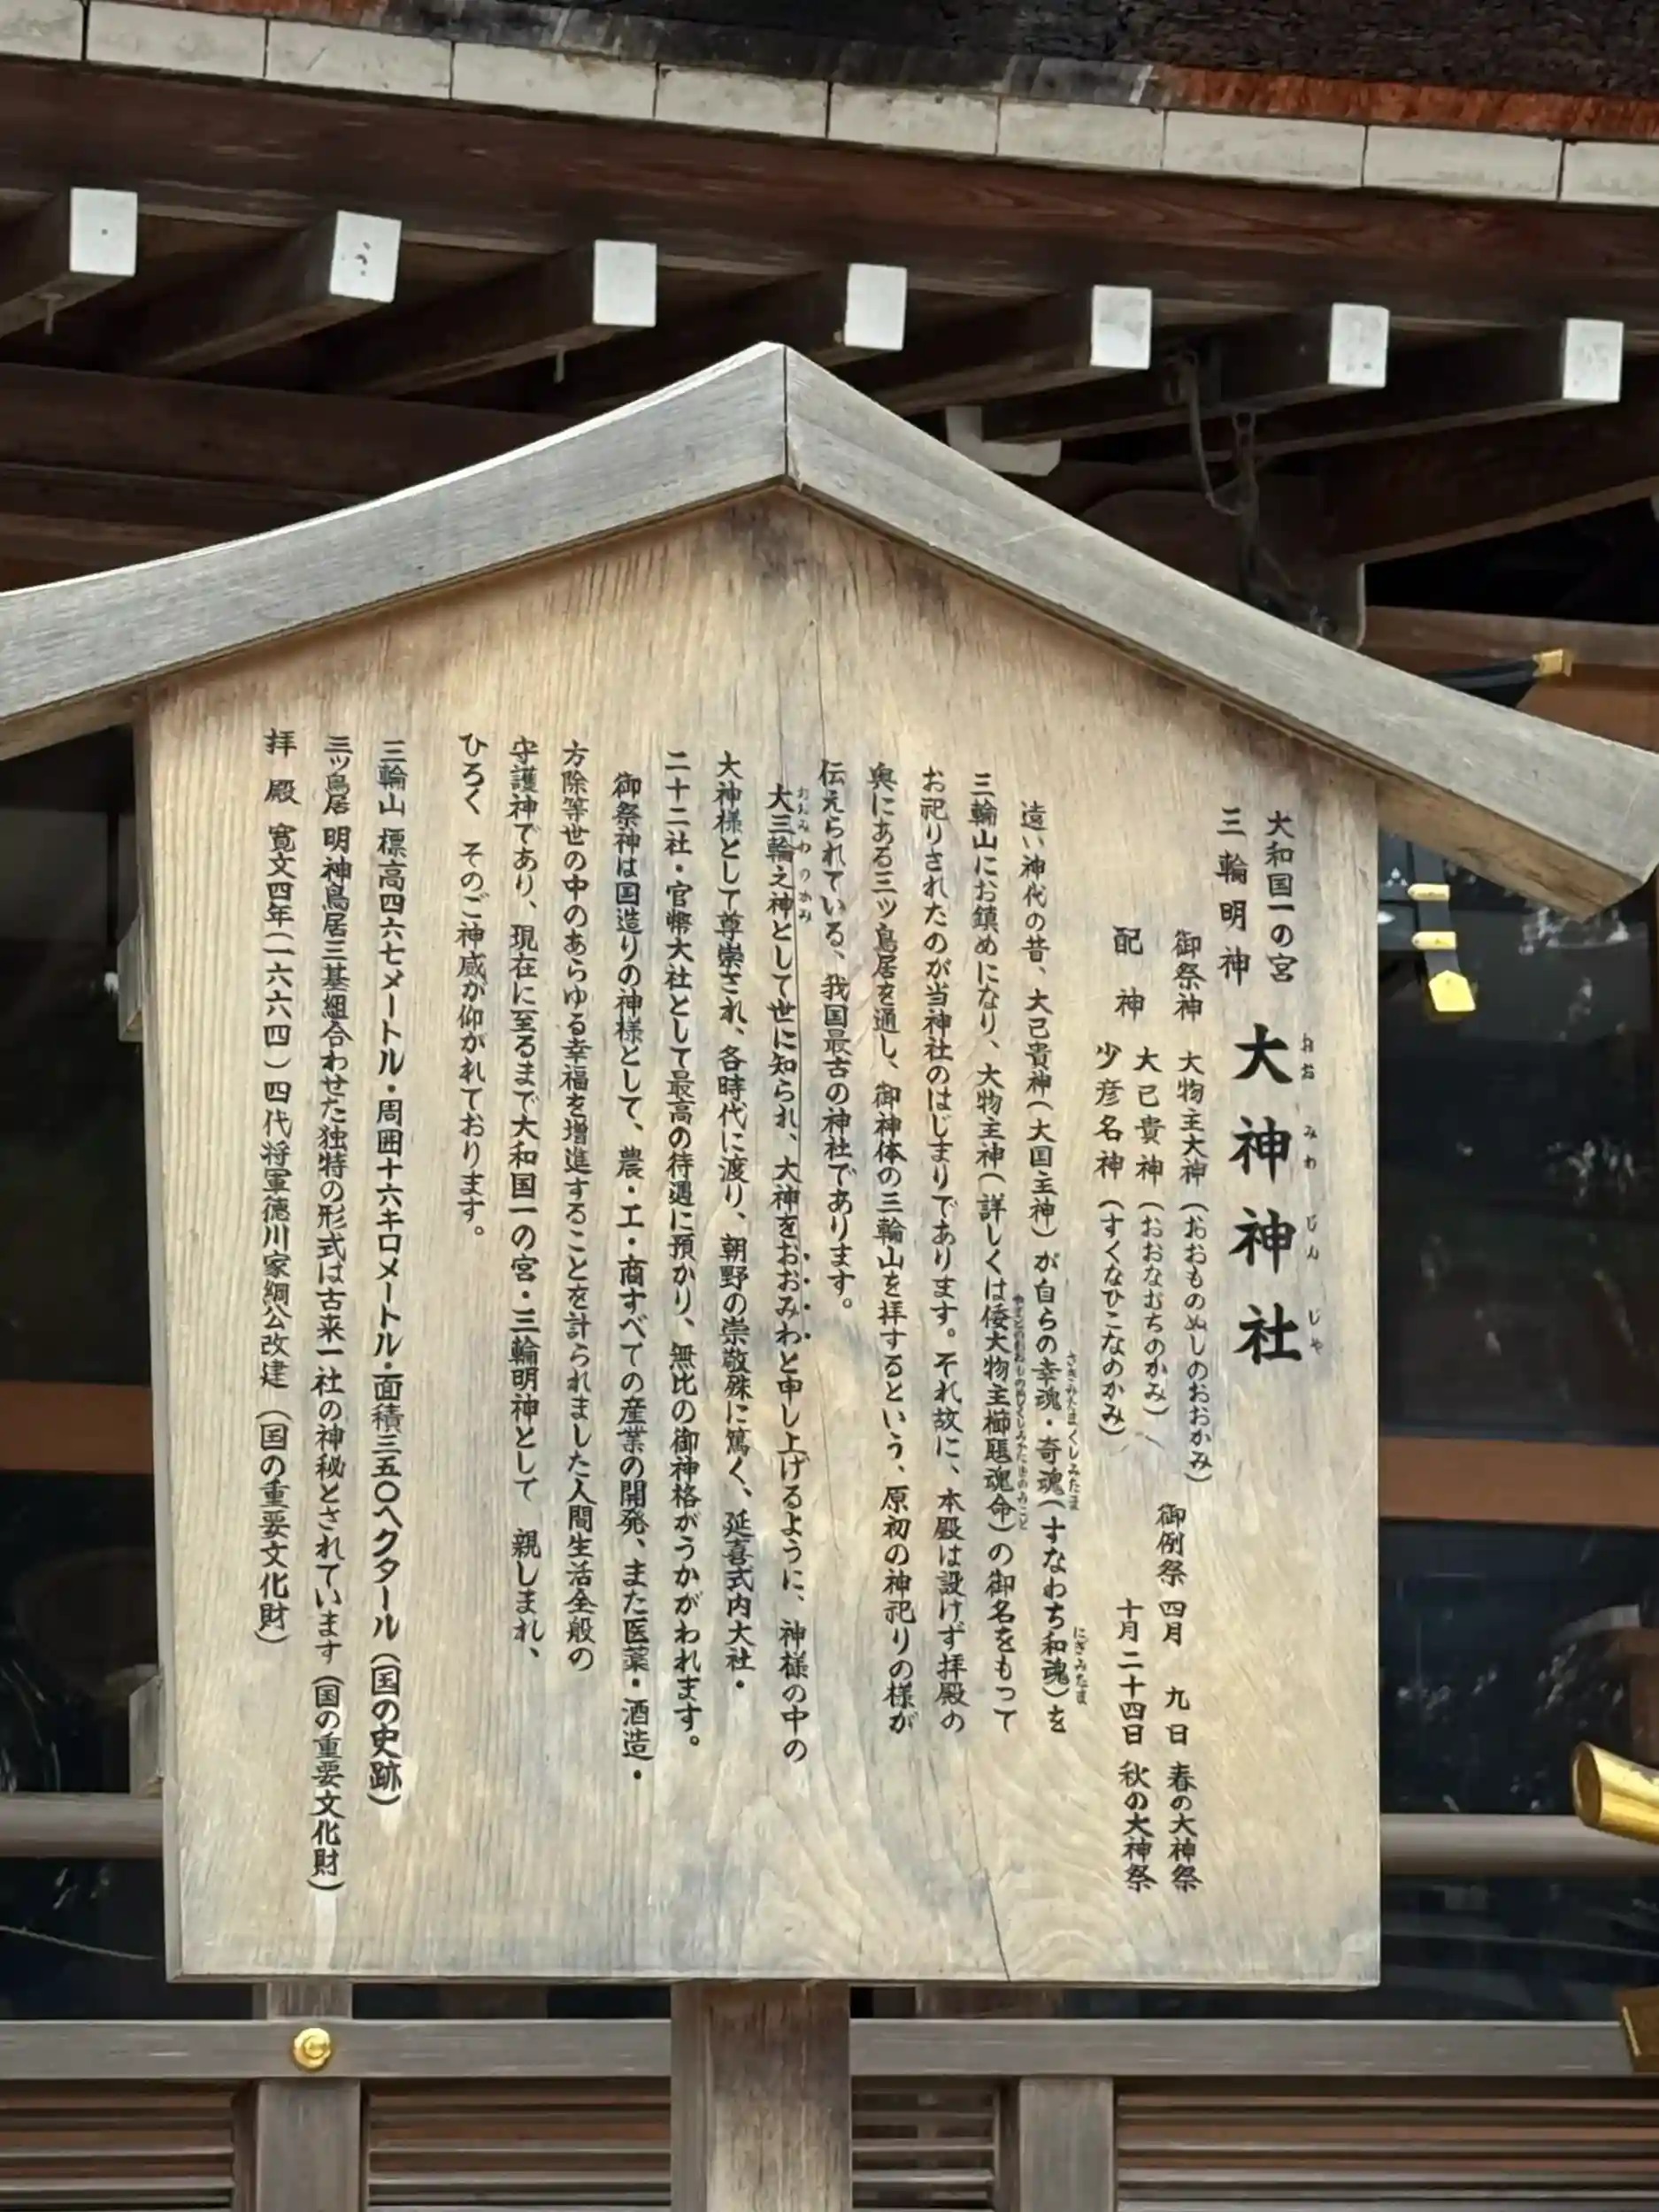 大和国一の宮
三輪明神
大神神社
おおみわじんじゃ
御祭神 大物主大神(おおものぬしのおおかみ)
配神 大己貴神(おおなむちのかみ)
少彦名神(すくなひこなのかみ)
御例祭 四月 九日 春の大神祭
十月二十四日 秋の大神祭
遠い神代の昔、大己貴神(大国主神)が自らの幸魂・奇魂(すなわち和魂)を
さきみたま くしみたま にぎみたま
三輪山にお鎮めになり、大物主神(詳しくは倭大物主櫛𤭖魂命)の御名をもって
やまとのおおものぬしくしみかたまのみこと
お祀りされたのが当神社のはじまりであります。それ故に、本殿は設けず拝殿の
奥にある三ツ鳥居を通し、御神体の三輪山を拝するという、原初の神祀りの様が
伝えられている、我国最古の神社であります。
大三輪之神として世に知られ、大神をおおみわと申し上げるように、神様の中の
おおみわのかみ
大神様として尊崇され、各時代に渡り、朝野の崇敬殊に篤く、延喜式内大社・
二十二社・官幣大社として最高の待遇に預かり、無比の御神格がうかがわれます。
御祭神は国造りの神様として、農・工・商すべての産業の開発、また医薬・酒造・
方除等世の中のあらゆる幸福を増進することを計られました人間生活全般の
守護神であり、現在に至るまで大和国一の宮・三輪明神として 親しまれ、
ひろく そのご神威が仰がれております。
三輪山 標高四六七メートル・周囲十六キロメートル・面積三五〇ヘクタール(国の史跡)
三ツ鳥居 明神鳥居三基組合わせた独特の形式は古来一社の神秘とされています(国の重要文化財)
拝殿 寛文四年(一六六四)四代将軍徳川家綱公改建(国の重要文化財)